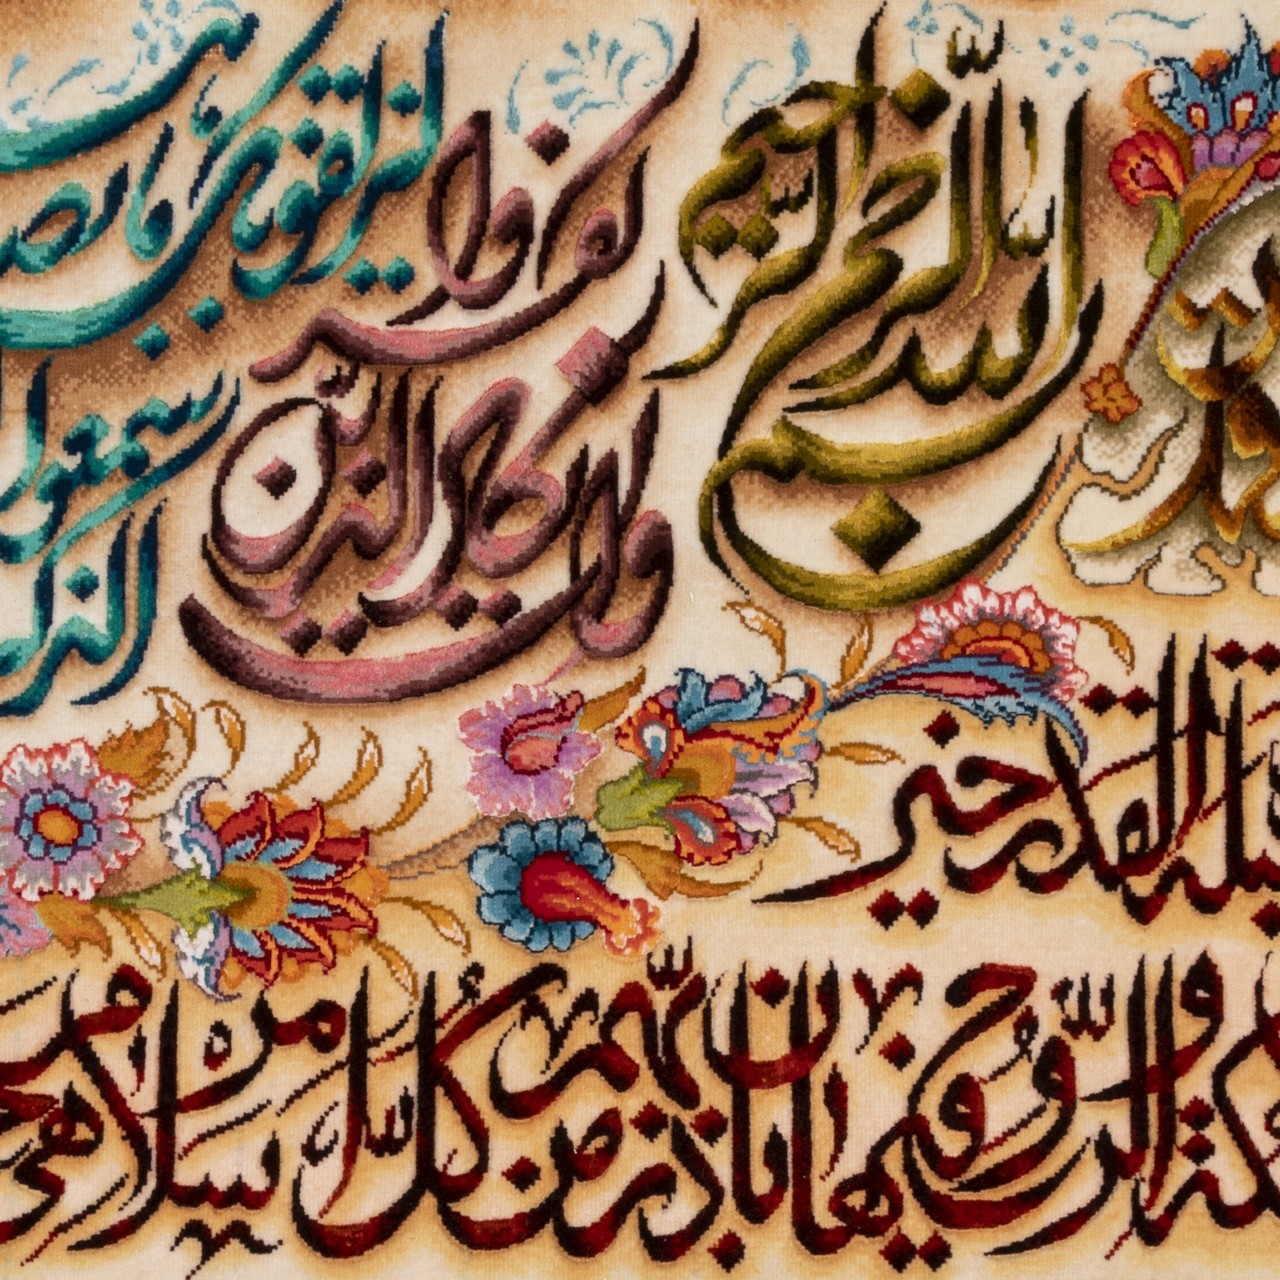 بسم الله الرحمن الرحیم
وان یکاد الذین کفروا
لیزلقونک بابصارهم
سمعوا الذکر
لیلة القدر خیر
والروح فیها باذن ربهم من کل امر سلام هی